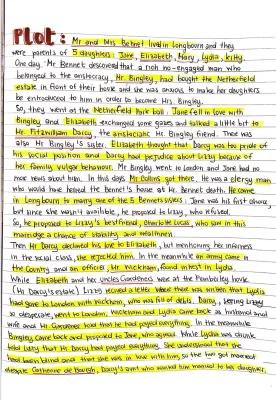 Plot: Mr and Mrs Bennet lived in Longbourn and they
were parents of 5 daughters: Jane, Elizabeth, Mary, Lydia, Kitty.
One day Mr Bennet discovered that a rich no-engaged man who
belonged to the aristocracy, Mr. Bingley, had bought the Netherfield
estate in front of their house and she was anxious to make her daughters
be introduced to him in order to become Mrs Bingley.
So, they went at the Netherfield Park ball. Jane fell in love with
Bingley and Elizabeth exchanged some gazes and talked a little bit to
Mr. Fitzwilliam Darcy, the aristocratic Mr. Bingley friend. There was
also Mr Bingley's sister. Elizabeth thought that Darcy was too pride of
his social position and Darcy had prejudice about Lizzy because of
her family vulgar behaviour. Mr Bingley went to London and Jane had no
more news about him. In this days Mr Collins got there. He was a clergy man
who would have herited the Bennet's house at Mr Bennet death. He came
in Longbourn to marry one of the 5 Bennets sisters: Jane was his first choice,
but since she wasn't available, he proposed to Lizzy, who refused.
So, he proposed to Lizzy's bestfriend, Charlotte Lucas, who saw in this
marriage a chance of stability and wealthness.
Then Mr Darcy declared his love to Elizabeth, but mentioning her inferiority
in the social class, she rejected him. In the meanwhile an army came in
the Country and an officer, Mr Wickham, found interest in Lydia.
While Elizabeth and her uncles Gardeners were at the Pemberley house
(Mr Darcy's estate) Lizzy recived a letter where there was written that Lydia
had gone to London with Wickham, who was full of debts. Darcy, seeing Lizzy
so desesperate, went to London. Wickham and Lydia came back as husband and
wife and Mr Gardener told that he had payed everything. In the meanwhile
Bingley came back and proposed to Jane, who agreed. While Lydia was drunk
told Lizzy that Mr Darcy had payed everything. She understood that she
had been blind and that she was in love with him, so the two got married
despite Catherine de Bourgh, Darcy's aunt who wanted him married to her daughter.